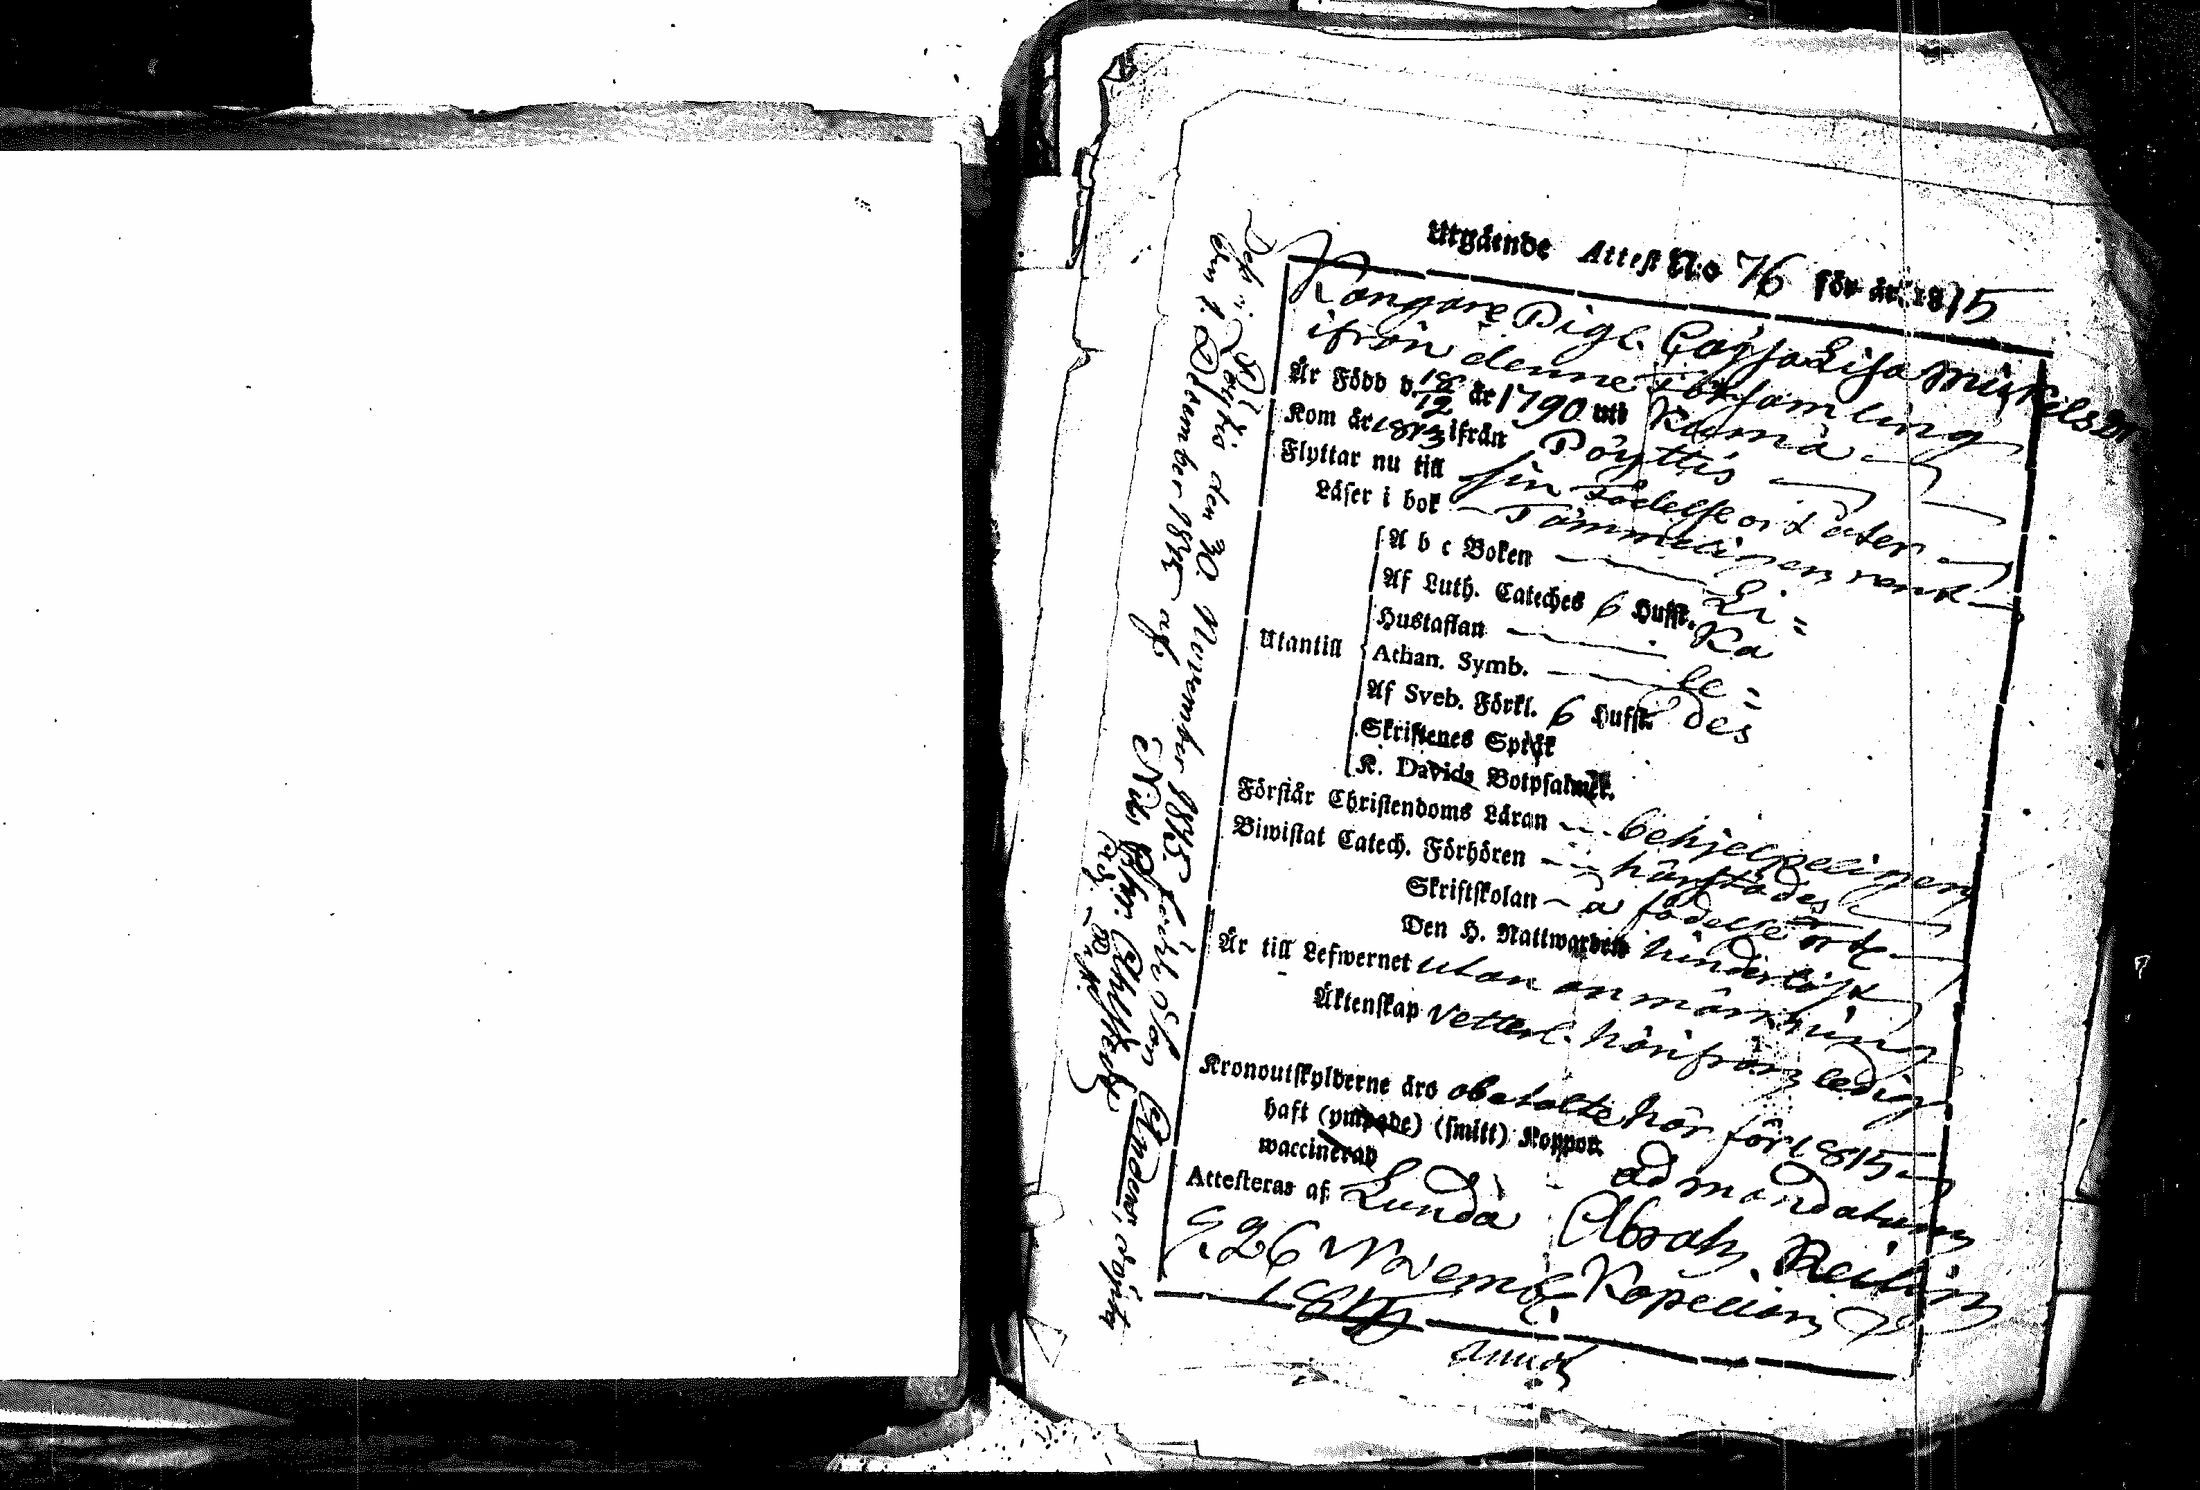 Utgående Attest No 76 för år 1815
Kangare Pig. Cajsa Lisa Mickelsdr
ifrån denne Församling
Är Född d. 18/12 år 1790 uti Rumå
Kom år 1813 ifrån Pöyttis
Flyttar nu till sin Födelse ort åter
Läser i bok
Utantill
A b c Boken
Af Luth. Cateches 6 Hufst.
Hustaflan
Athan. Symb.
Af Sveb. Förkl. 6 Hufst.
Skriftenes Språk
K. Davids Botpsalmer.
Li=
ka
le=
des
Förstår Christendoms Läran behjelpeligen
Biwistat Catech. Förhören härstädes
Skriftskolan å födelse ort
Den H. Nattwarden hinderlöst
Är till Lefwernet utan anmärkning
Äktenskap vetterl. härifrån ledig
Kronoutskylderne äro obetalte här för 1815
haft (ympade) (smitt) Koppor.
waccinerad
Attesteras af Lundo ad mandatum
d. 26 Novemb. Abrah.
1815 Kapellan
Pöyttis den 30. November 1815
den 1. December 1815 af
Nils